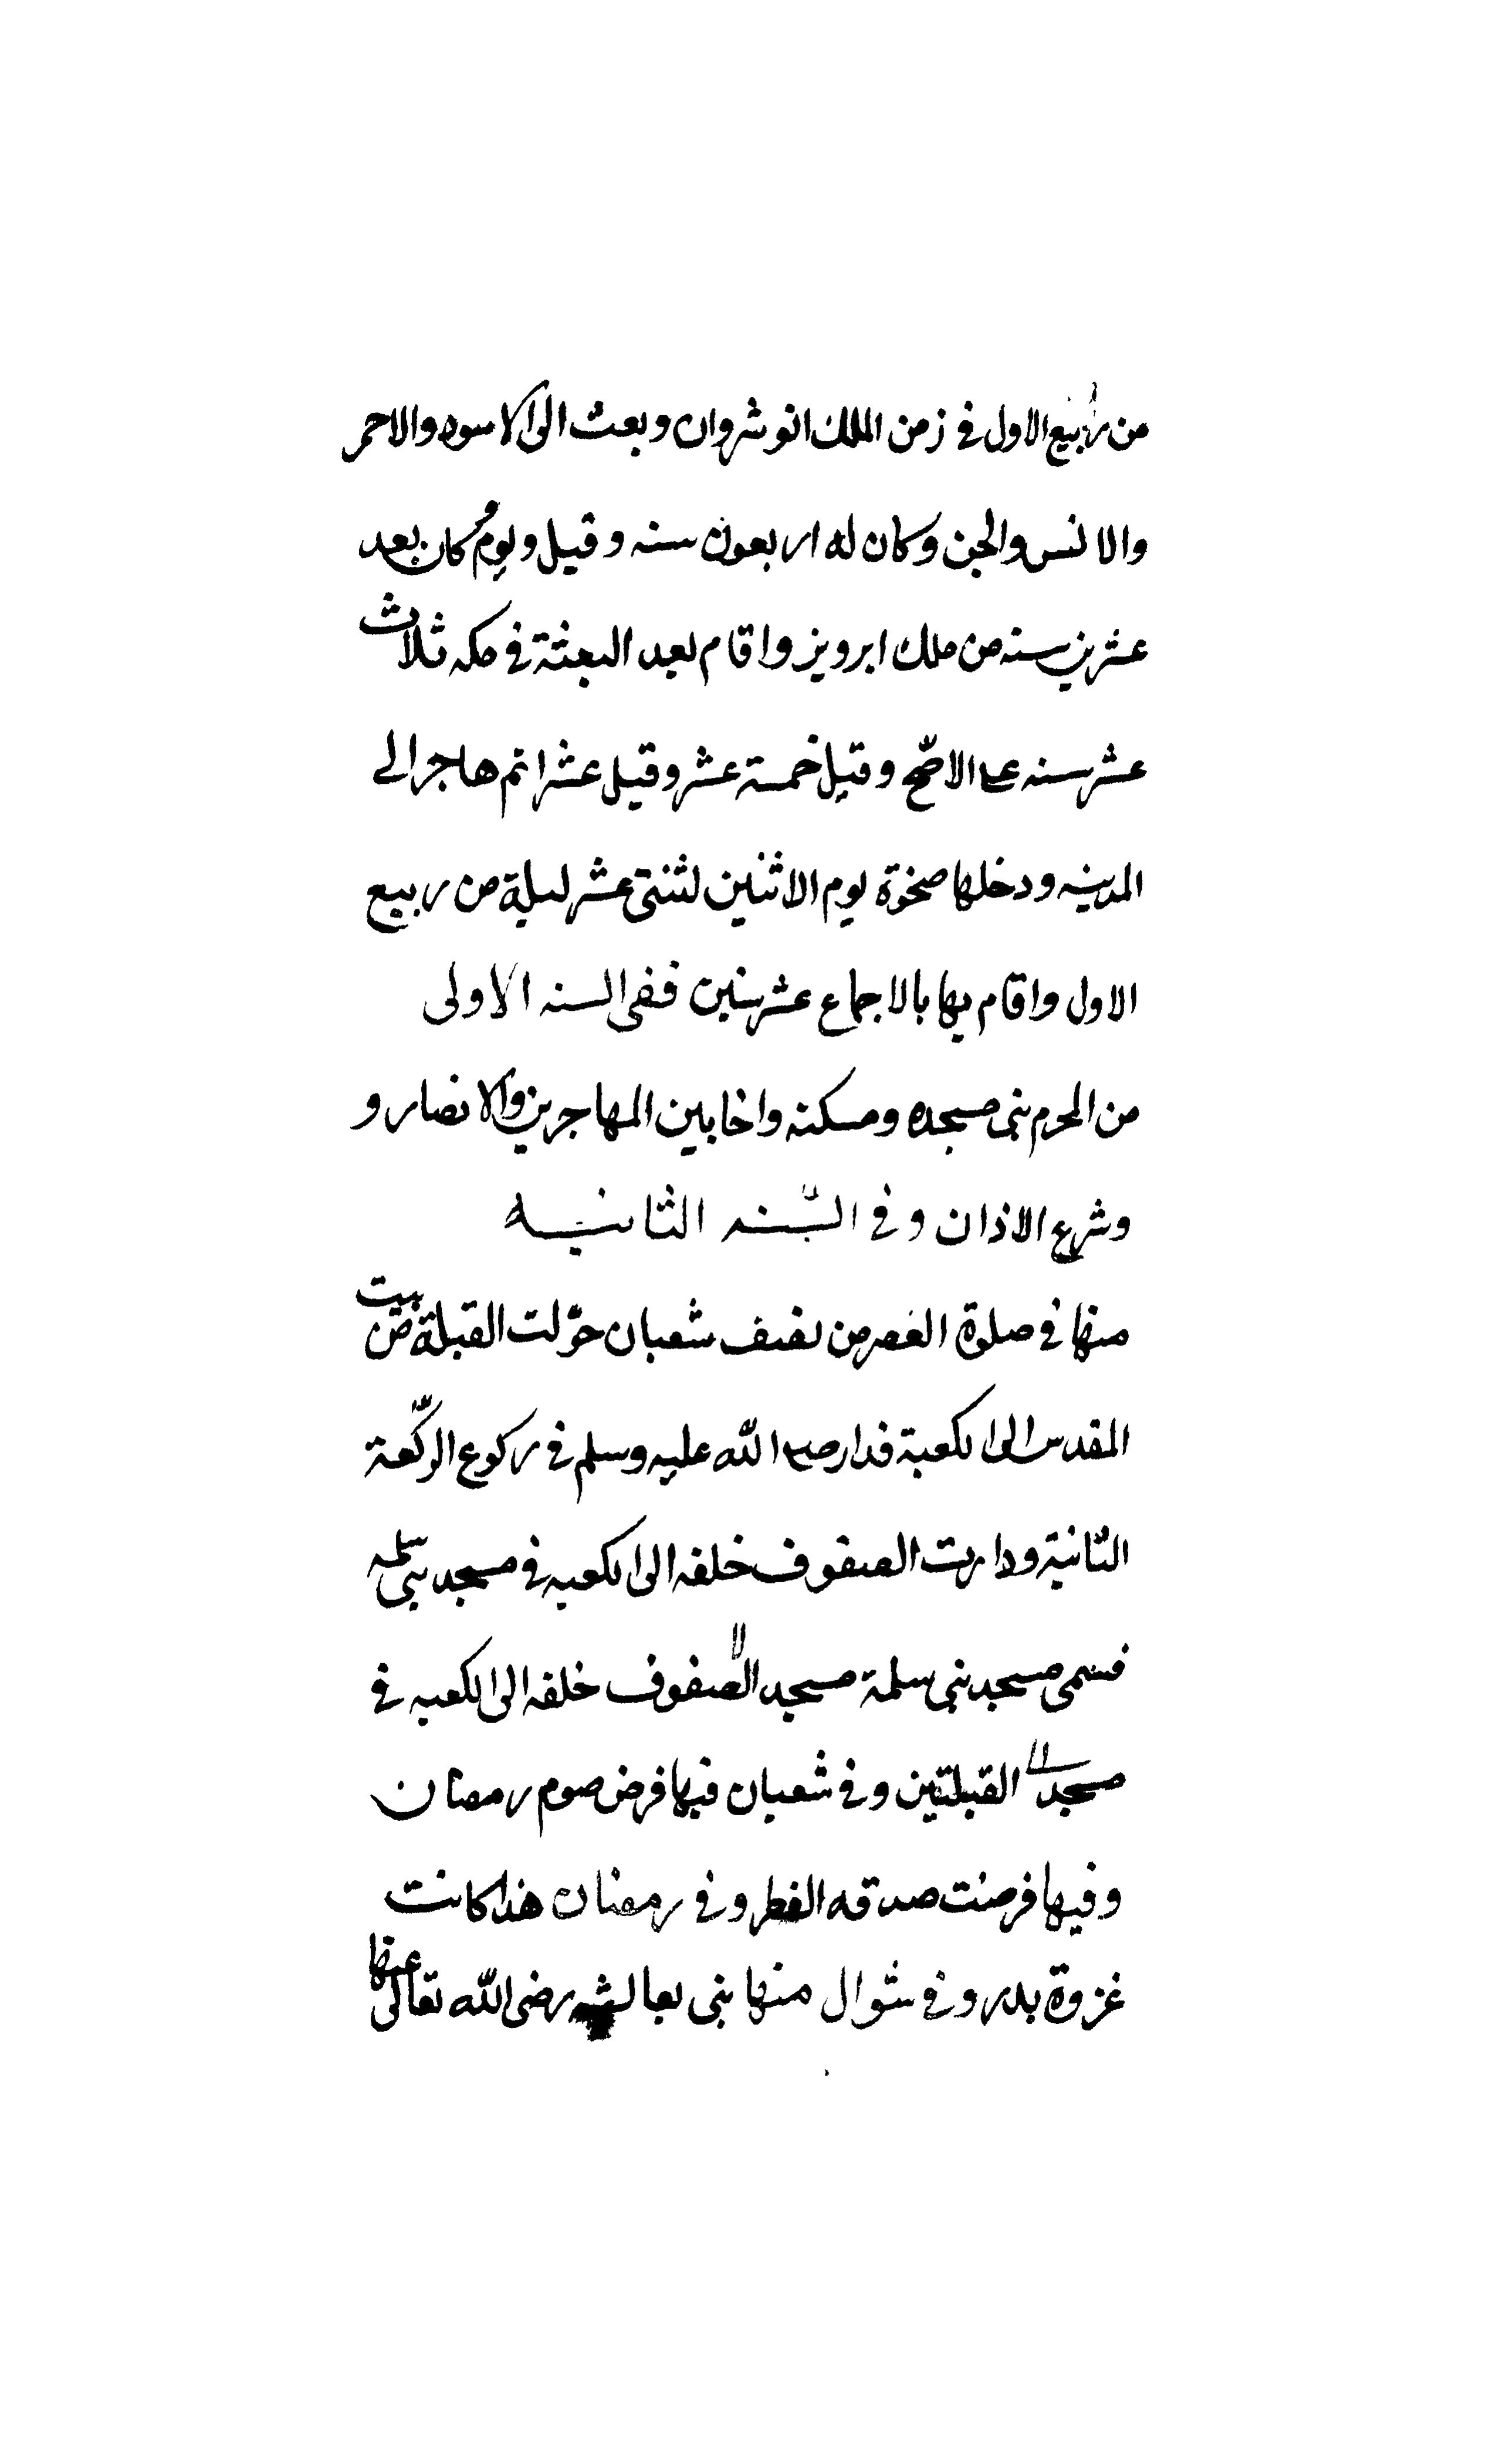 من ربيع الاول في زمن الملك انوشروان وبعث الى الاسود والاحمر
والانس والجن وكان له اربعون سنه وقيل ويوم كان بعد
عشرين سنه من ملك ابرويز واقام بعد البعثة في مكه ثلاث
عشر سنه على الاصح وقيل خمسة عشر وقيل عشرا ثم هاجر الى
المدينه ودخلها ضحوة يوم الاثنين لثنتى عشر ليلة من ربيع
الاول واقام بها بالاجماع عشر سنين ففى السنه الاولى
من المحرم بنى مسجده ومسكنه واخا بين المهاجرين والانصار و
وشرع الاذان وفي السنه الثانيه
منها في صلوة العصر من نصف شعبان حوّلت القبلة من بيت
المقدس الى الكعبة فدار صلى الله عليه وسلم في ركوع الركعة
الثانية ودارت الصفوف خلفه الى الكعبه في مسجد بنى سلمه
فسمى مسجد بنى سلمة مسجد الصفوف خلفه الى الكعبه في
مسجد القبلتين وفي شعبان فيها فرض صوم رمضان
وفيها فرضت صدقه الفطر وفي رمضان هذا كانت
غزوة بدر وفي شوال منها بنى بعائشه رضى الله تعالى عنها